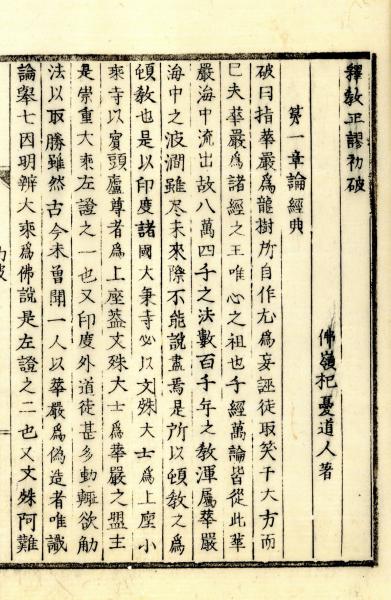 釋教正謬初破
佛嶺杞憂道人著
第一章論經典
破曰指華嚴爲龍樹所自作尤爲妄誣徒取笑于大方而
已夫華嚴爲諸經之王唯心之祖也千經萬論皆從此華
嚴海中流出故八萬四千之法數百千年之教渾屬華嚴
海中之波瀾雖尽未來際不能說盡焉是所以頓教之爲
頓教也是以印度諸國大乘寺必以文殊大士爲上座小
乘寺以賓頭盧尊者爲上座蓋文殊大士爲華嚴之盟主
是崇重大乘左證之一也又印度外道徒甚多動輙欲觔
法以取勝雖然古今未曾聞一人以華嚴爲偽造者唯識
論舉七因明辨大乘爲佛說是左證之二也又文殊阿難
初破